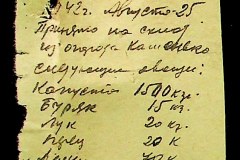 1942г. Августа-25
Принято на склад
из огорода Каменько
следующие овощи:
Капуста 1500 кг.
Буряк 15 кг.
Лук 20 кг.
Перец 20 к